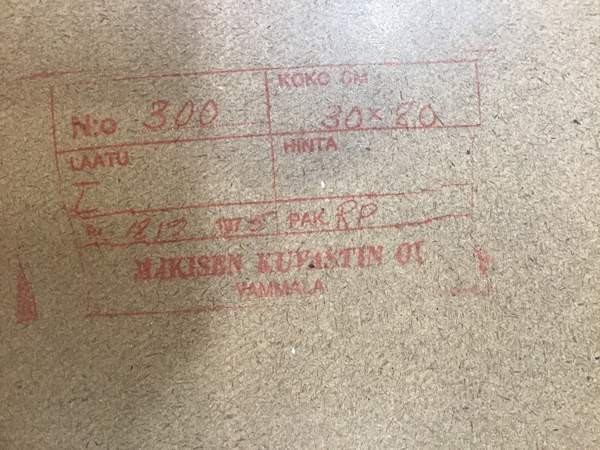 KOKO CM
N:o 300 30 x 80
LAATU HINTA
I
PAK. RP
MÄKISEN KUVASTIN OY
VAMMALA